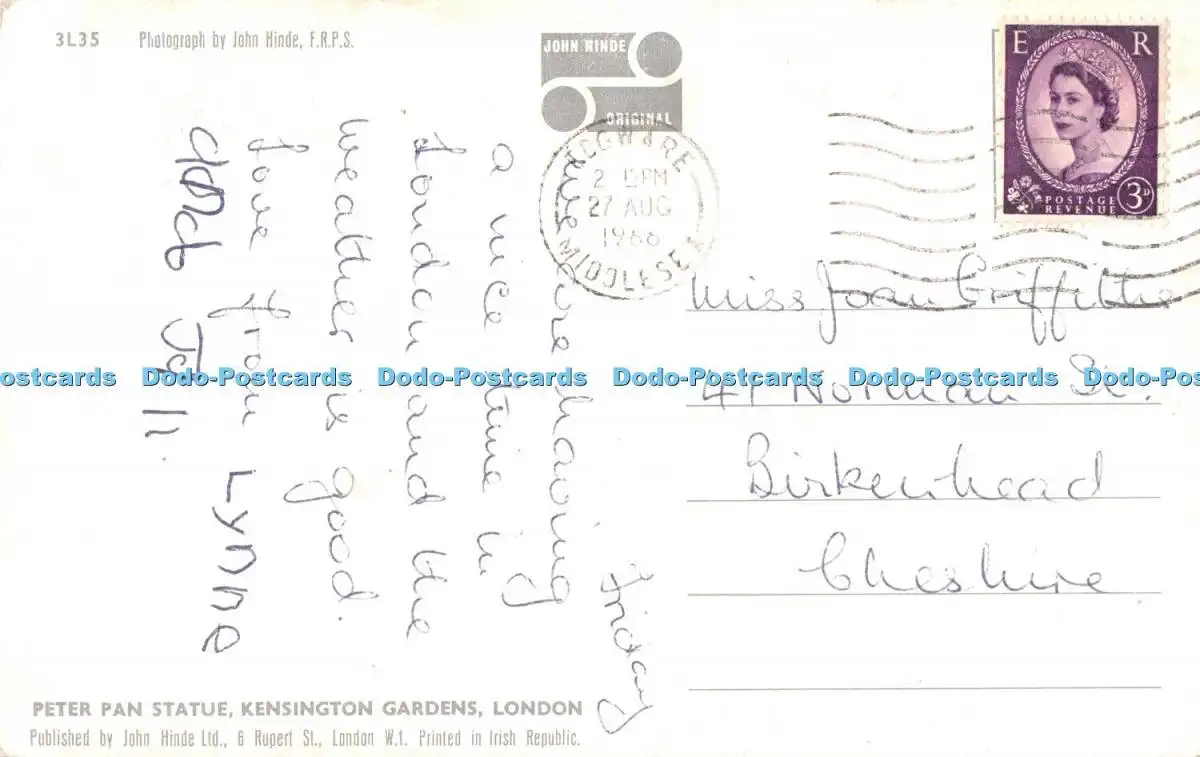 3L35 Photograph by John Hinde, F.R.P.S.
JOHN HINDE
ORIGINAL
E R
POSTAGE
REVENUE
3D
EDGWARE
2 15PM
27 AUG
1966
MIDDLESEX
Friday
We are having
a nice time in
London and the
weather is good.
love from Lynne
and
Miss Joan Griffiths
41 Norman St.
Birkenhead
Cheshire
Dodo-Postcards Dodo-Postcards Dodo-Postcards Dodo-Postcards
PETER PAN STATUE, KENSINGTON GARDENS, LONDON
Published by John Hinde Ltd., 6 Rupert St., London W.1. Printed in Irish Republic.